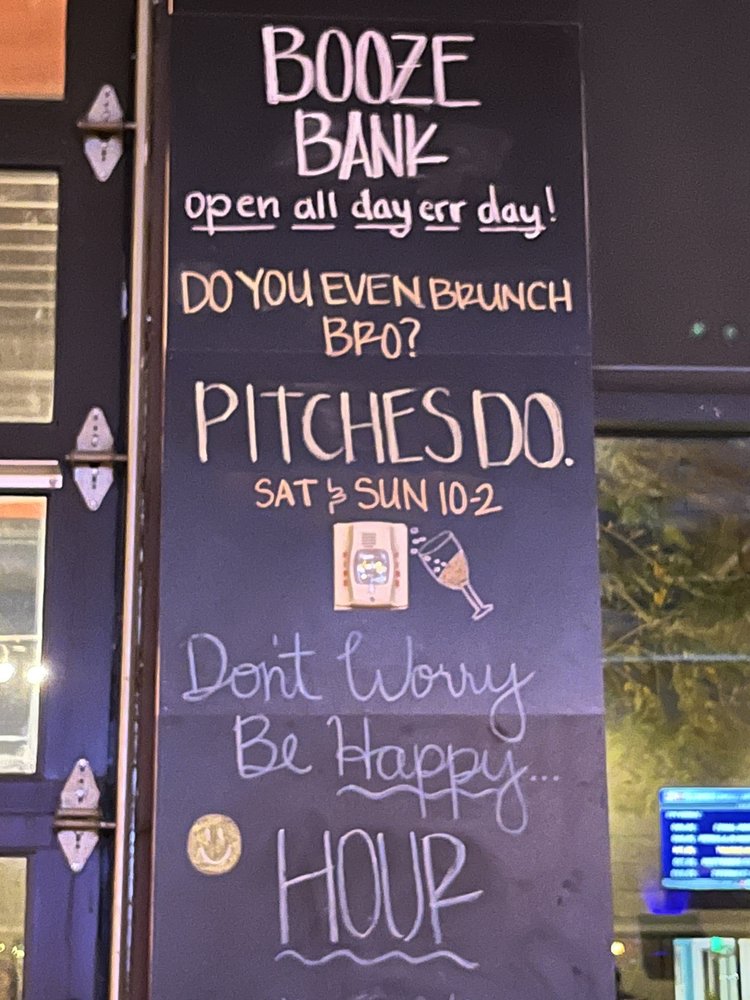 BOOZE
BANK
open all day err day!
DO YOU EVEN BRUNCH
BRO?
PITCHES DO.
SAT & SUN 10-2
Don't Worry
Be Happy...
HOUR